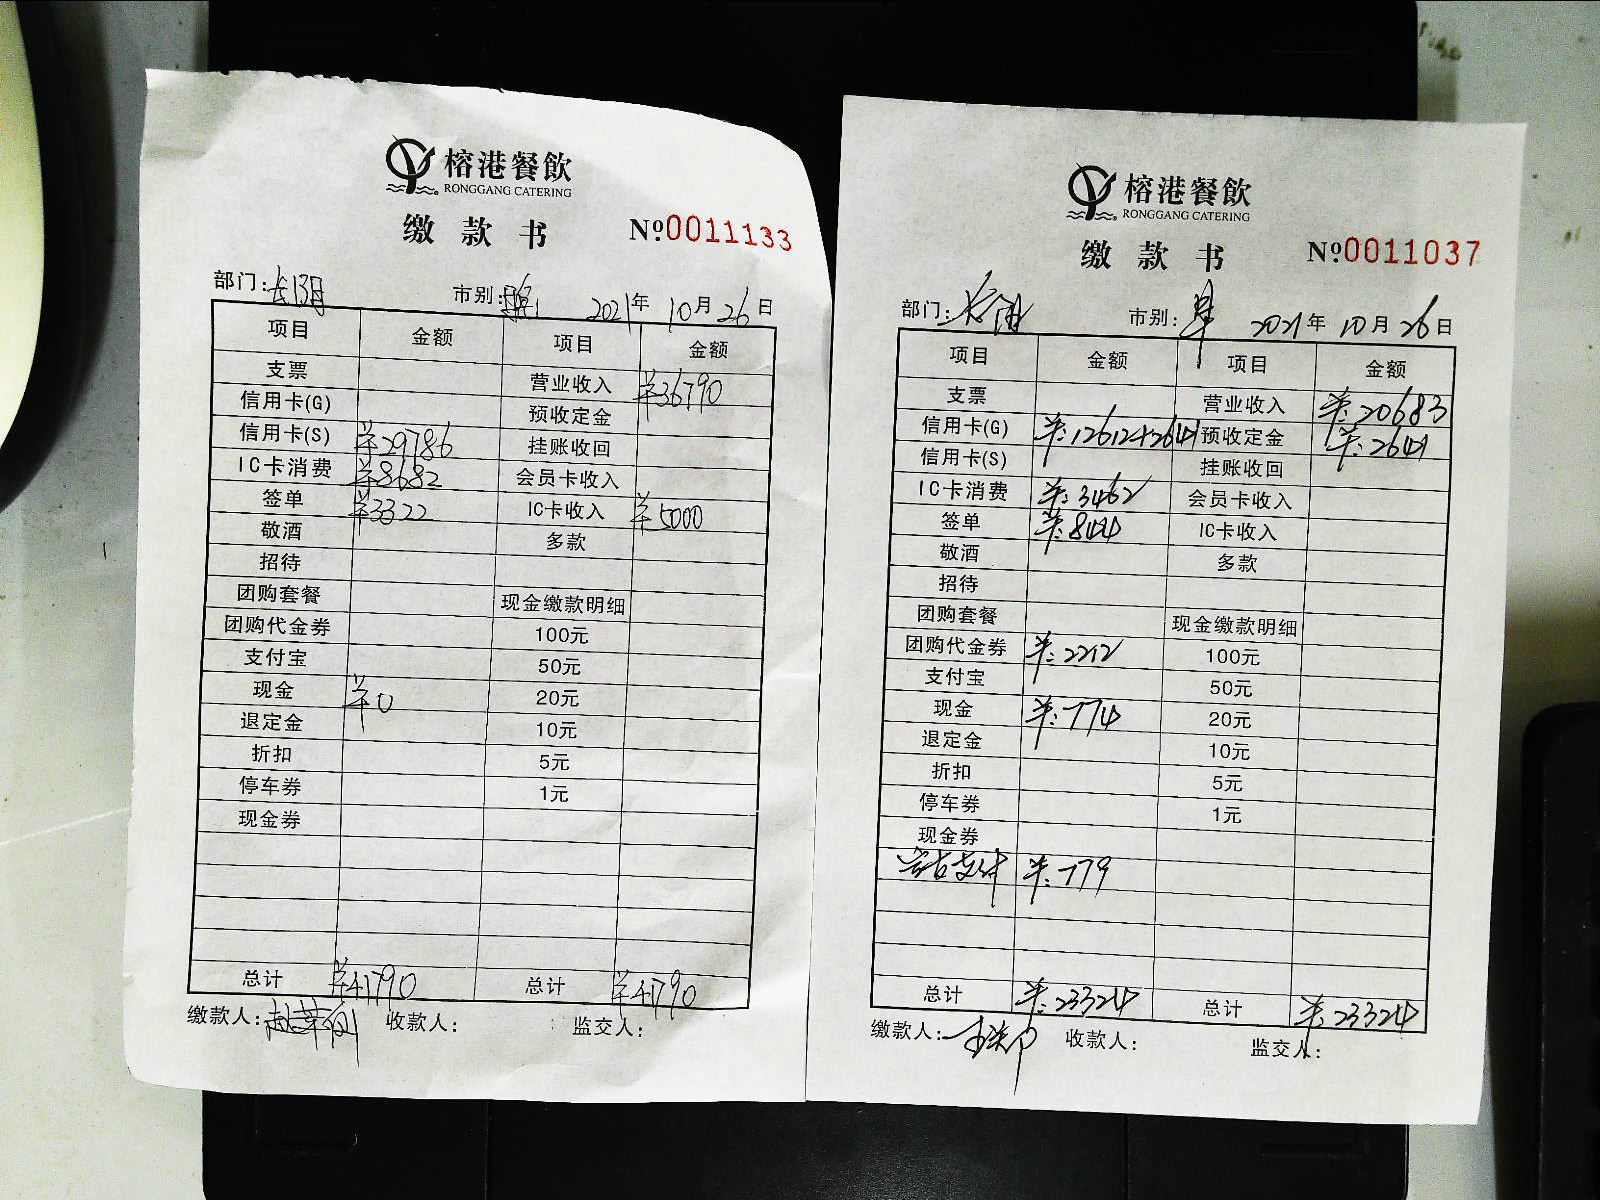 榕港餐飲
RONGGANG CATERING
缴款书 №0011133
部门: 市别: 2021年10月26日
项目 金额 项目 金额
支票 营业收入 ¥36790
信用卡(G) 预收定金
信用卡(S) ¥29786 挂账收回
IC卡消费 ¥8682 会员卡收入
签单 ¥3322 IC卡收入 ¥5000
敬酒 多款
招待
团购套餐 现金缴款明细
团购代金券 100元
支付宝 50元
现金 ¥0 20元
退定金 10元
折扣 5元
停车券 1元
现金券
总计 ¥41790 总计 ¥41790
缴款人: 收款人: 监交人:
榕港餐飲
RONGGANG CATERING
缴款书 №0011037
部门: 市别: 早 2021年10月26日
项目 金额 项目 金额
支票 营业收入 ¥:20683
信用卡(G) ¥:12612+2641 预收定金 ¥:2641
信用卡(S) 挂账收回
IC卡消费 ¥:3462 会员卡收入
签单 ¥:844 IC卡收入
敬酒 多款
招待
团购套餐 现金缴款明细
团购代金券 ¥:2212 100元
支付宝 50元
现金 ¥:774 20元
退定金 10元
折扣 5元
停车券 1元
现金券
支付 ¥:779
总计 ¥:23324 总计 ¥:23324
缴款人: 收款人: 监交人: